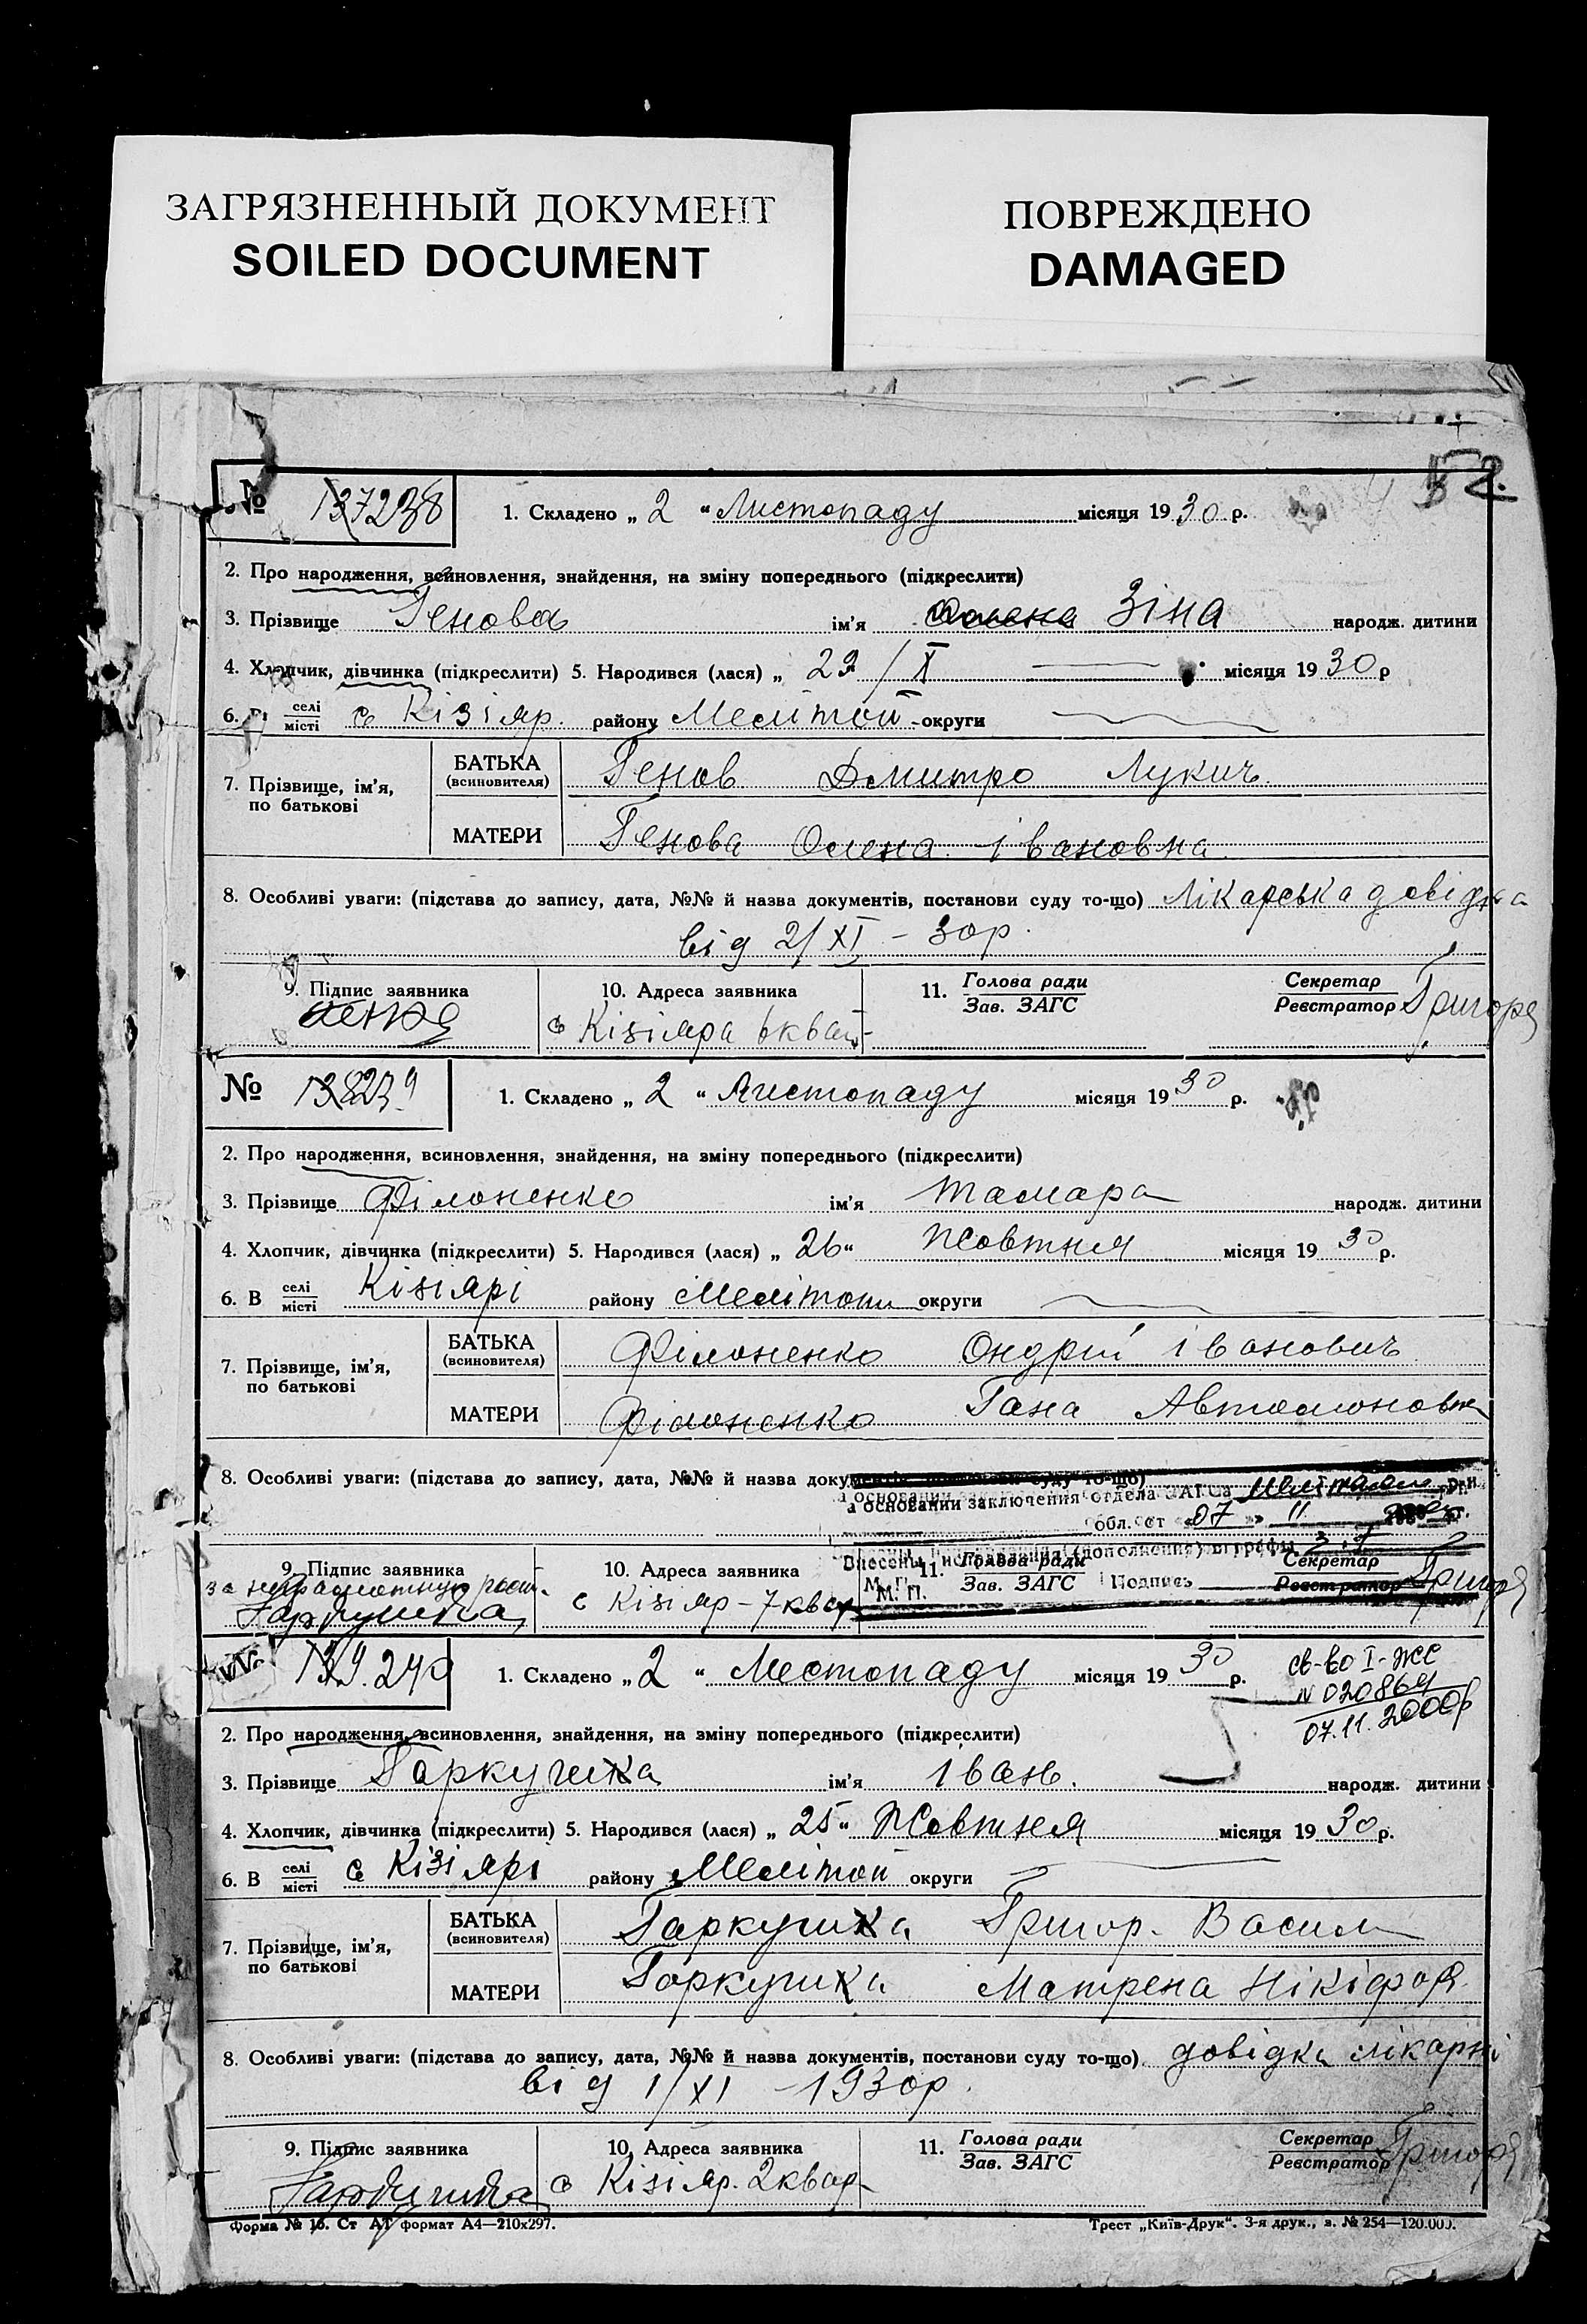 ЗАГРЯЗНЕННЫЙ ДОКУМЕНТ
SOILED DOCUMENT
ПОВРЕЖДЕНО
DAMAGED
52.
№ 137238 1. Складено „ 2 “ Листопаду місяця 1930 р.
2. Про народження, всиновлення, знайдення, на зміну попереднього (підкреслити)
3. Прізвище Генова ім'я Зіна народж. дитини
4. Хлопчик, дівчинка (підкреслити) 5. Народився (лася) „ 29/X місяця 1930 р
6. В селі місті с Кізіяр. району Мелітоп округи
7. Прізвище, ім'я, по батькові
БАТЬКА (всиновителя) Генов Дмитро Лукич.
МАТЕРИ Генова Олена івановна.
8. Особливі уваги: (підстава до запису, дата, №№ й назва документів, постанови суду то-що) Лікарська довідка
від 2/XI - 30р.
9. Підпис заявника 10. Адреса заявника 11. Голова ради Зав. ЗАГС Секретар Реєстратор
с Кізіяра 6 квар
№ 138239 1. Складено „ 2 “ Листопаду місяця 1930 р.
2. Про народження, всиновлення, знайдення, на зміну попереднього (підкреслити)
3. Прізвище Філоненко ім'я Тамара народж. дитини
4. Хлопчик, дівчинка (підкреслити) 5. Народився (лася) „ 26 “ Жовтня місяця 1930 р.
6. В селі місті Кізіярі району Мелітоп округи
7. Прізвище, ім'я, по батькові
БАТЬКА (всиновителя) Філоненко Ондрій івановичь
МАТЕРИ Філоненко Гана Автомоновна
8. Особливі уваги: (підстава до запису, дата, №№ й назва документів, постанови суду то-що)
а основании заключения отдела ЗАГСа
обл. от «07» 11
Внесены исправления (дополнения) в графы 3, 7
М. П. Подпись
9. Підпис заявника 10. Адреса заявника 11. Голова ради Зав. ЗАГС Секретар Реєстратор
за неграмотную
с Кізіяр - 7 квар
№ 139.240 1. Складено „ 2 “ Лестопаду місяця 1930 р.
св-во I-ЖС
N 020864
07.11.2000р
2. Про народження, всиновлення, знайдення, на зміну попереднього (підкреслити)
3. Прізвище Гаркуша ім'я івань. народж. дитини
4. Хлопчик, дівчинка (підкреслити) 5. Народився (лася) „ 25 “ Жовтня місяця 1930 р.
6. В селі місті с Кізіярі району Мелітоп округи
7. Прізвище, ім'я, по батькові
БАТЬКА (всиновителя) Гаркуша Григор. Васил
МАТЕРИ Гаркуша Матрена Нікіфор.
8. Особливі уваги: (підстава до запису, дата, №№ й назва документів, постанови суду то-що) довідка лікарні
від 1/XI - 1930р.
9. Підпис заявника 10. Адреса заявника 11. Голова ради Зав. ЗАГС Секретар Реєстратор
с Кізіяр. 2 квар
Форма № 16. Ст АТ формат А4—210х297.
Трест „Київ-Друк“. 3-я друк., з. № 254—120.000.